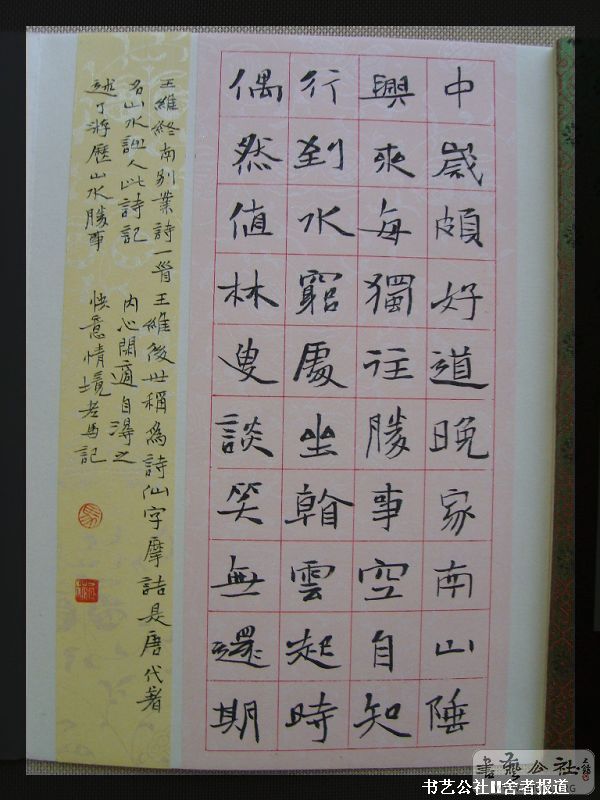 中歲頗好道晚家南山陲
興來每獨往勝事空自知
行到水窮處坐看雲起時
偶然值林叟談笑無還期
王維終南別業詩一首王維後世稱為詩仙字摩詰是唐代著
名山水詩人此詩記內心閑適自得之
述了游歷山水勝事快意情境老馬記
書藝公社
书艺公社II舍者报道